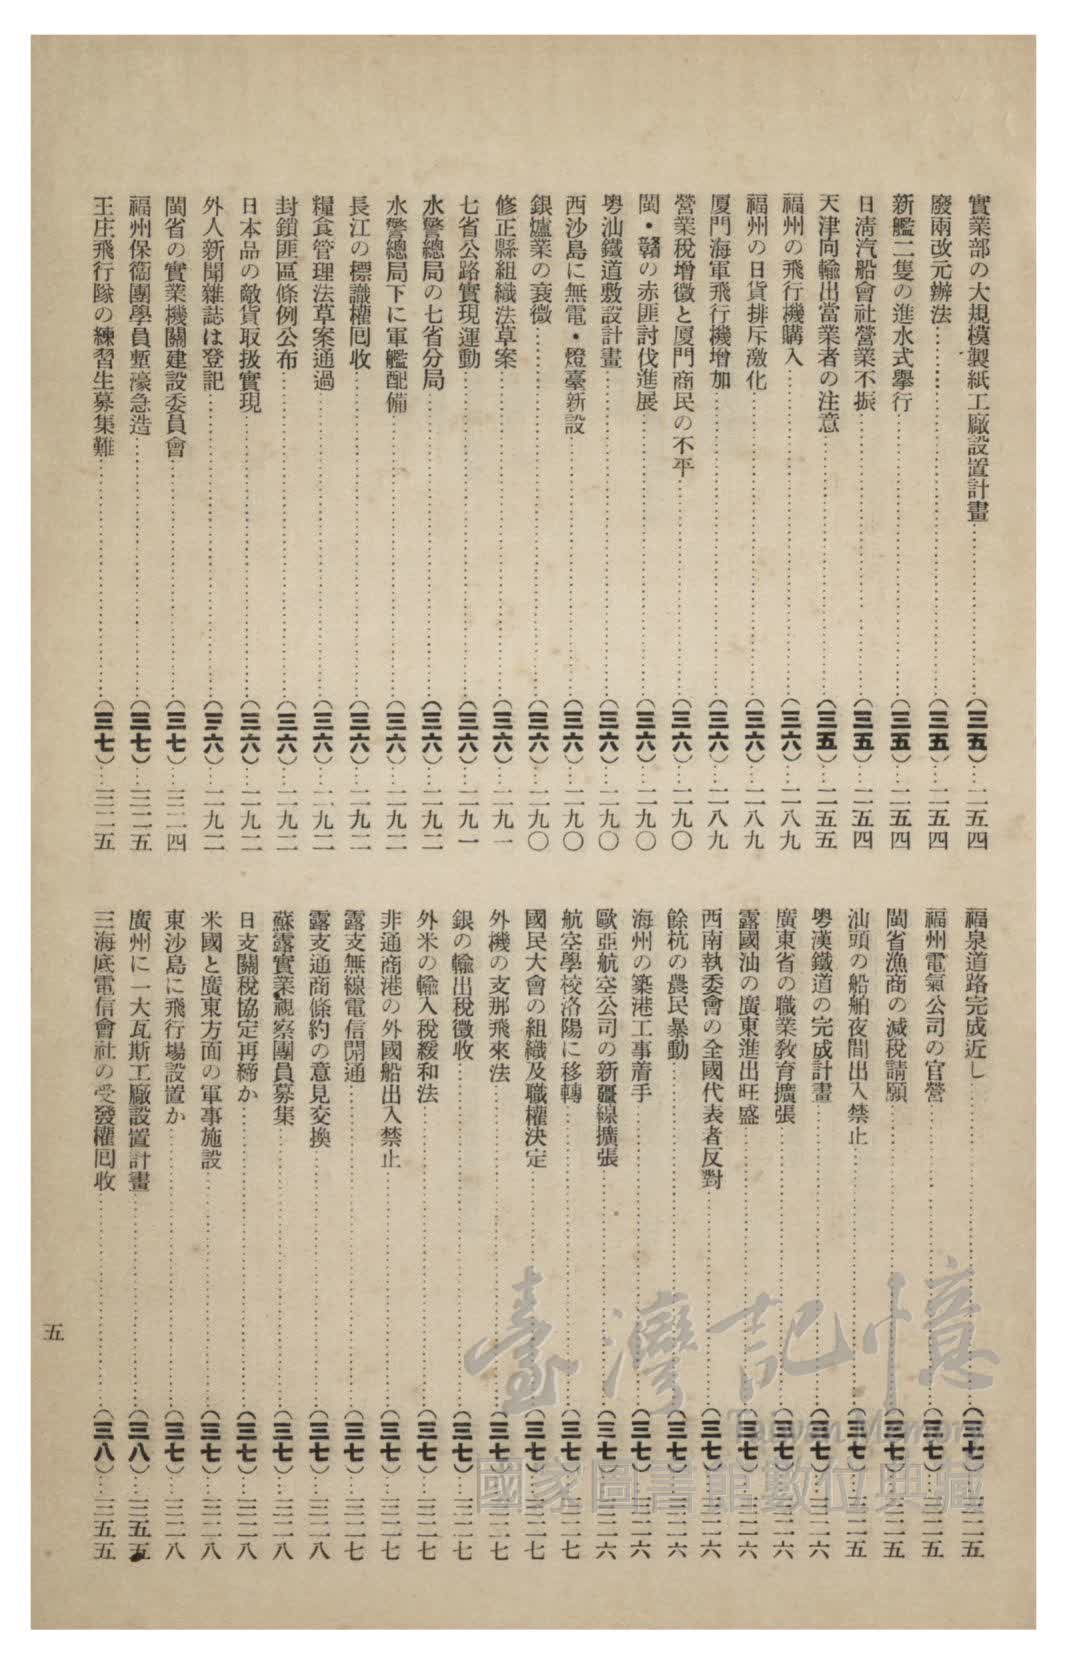 實業部の大規模製紙工廠設置計畫……(三五)…二五四
廢兩改元辦法……(三五)…二五四
新艦二隻の進水式擧行……(三五)…二五四
日淸汽船會社營業不振……(三五)…二五四
天津向輸出當業者の注意……(三五)…二五五
福州の飛行機購入……(三六)…二八九
福州の日貨排斥激化……(三六)…二八九
厦門海軍飛行機增加……(三六)…二八九
營業稅增徵と厦門商民の不平……(三六)…二九〇
閩・贛の赤匪討伐進展……(三六)…二九〇
粤汕鐵道敷設計畫……(三六)…二九〇
西沙島に無電・燈臺新設……(三六)…二九〇
銀爐業の衰微……(三六)…二九〇
修正縣組織法草案……(三六)…二九一
七省公路實現運動……(三六)…二九一
水警總局の七省分局……(三六)…二九二
水警總局下に軍艦配備……(三六)…二九二
長江の標識權囘收……(三六)…二九二
糧食管理法草案通過……(三六)…二九二
封鎖匪區條例公布……(三六)…二九二
日本品の敵貨取扱實現……(三六)…二九二
外人新聞雜誌は登記……(三六)…二九二
閩省の實業機關建設委員會……(三七)…三二四
福州保衞團學員塹濠急造……(三七)…三二五
王庄飛行隊の練習生募集難……(三七)…三二五
福泉道路完成近し……(三七)…三二五
福州電氣公司の官營……(三七)…三二五
閩省漁商の減稅請願……(三七)…三二五
汕頭の船舶夜間出入禁止……(三七)…三二五
粤漢鐵道の完成計畫……(三七)…三二六
廣東省の職業敎育擴張……(三七)…三二六
露國油の廣東進出旺盛……(三七)…三二六
西南執委會の全國代表者反對……(三七)…三二六
餘杭の農民暴動……(三七)…三二六
海州の築港工事着手……(三七)…三二六
歐亞航空公司の新疆線擴張……(三七)…三二六
航空學校洛陽に移轉……(三七)…三二七
國民大會の組織及職權決定……(三七)…三二七
外機の支那飛來法……(三七)…三二七
銀の輸出稅徵收……(三七)…三二七
外米の輸入稅緩和法……(三七)…三二七
非通商港の外國船出入禁止……(三七)…三二七
露支無線電信開通……(三七)…三二七
露支通商條約の意見交換……(三七)…三二八
蘇露實業視察團員募集……(三七)…三二八
日支關稅協定再締か……(三七)…三二八
米國と廣東方面の軍事施設……(三七)…三二八
東沙島に飛行場設置か……(三七)…三二八
廣州に一大瓦斯工廠設置計畫……(三八)…三五五
三海底電信會社の受發權囘收……(三八)…三五五
五
臺灣記憶
Taiwan Memory
國家圖書館數位典藏